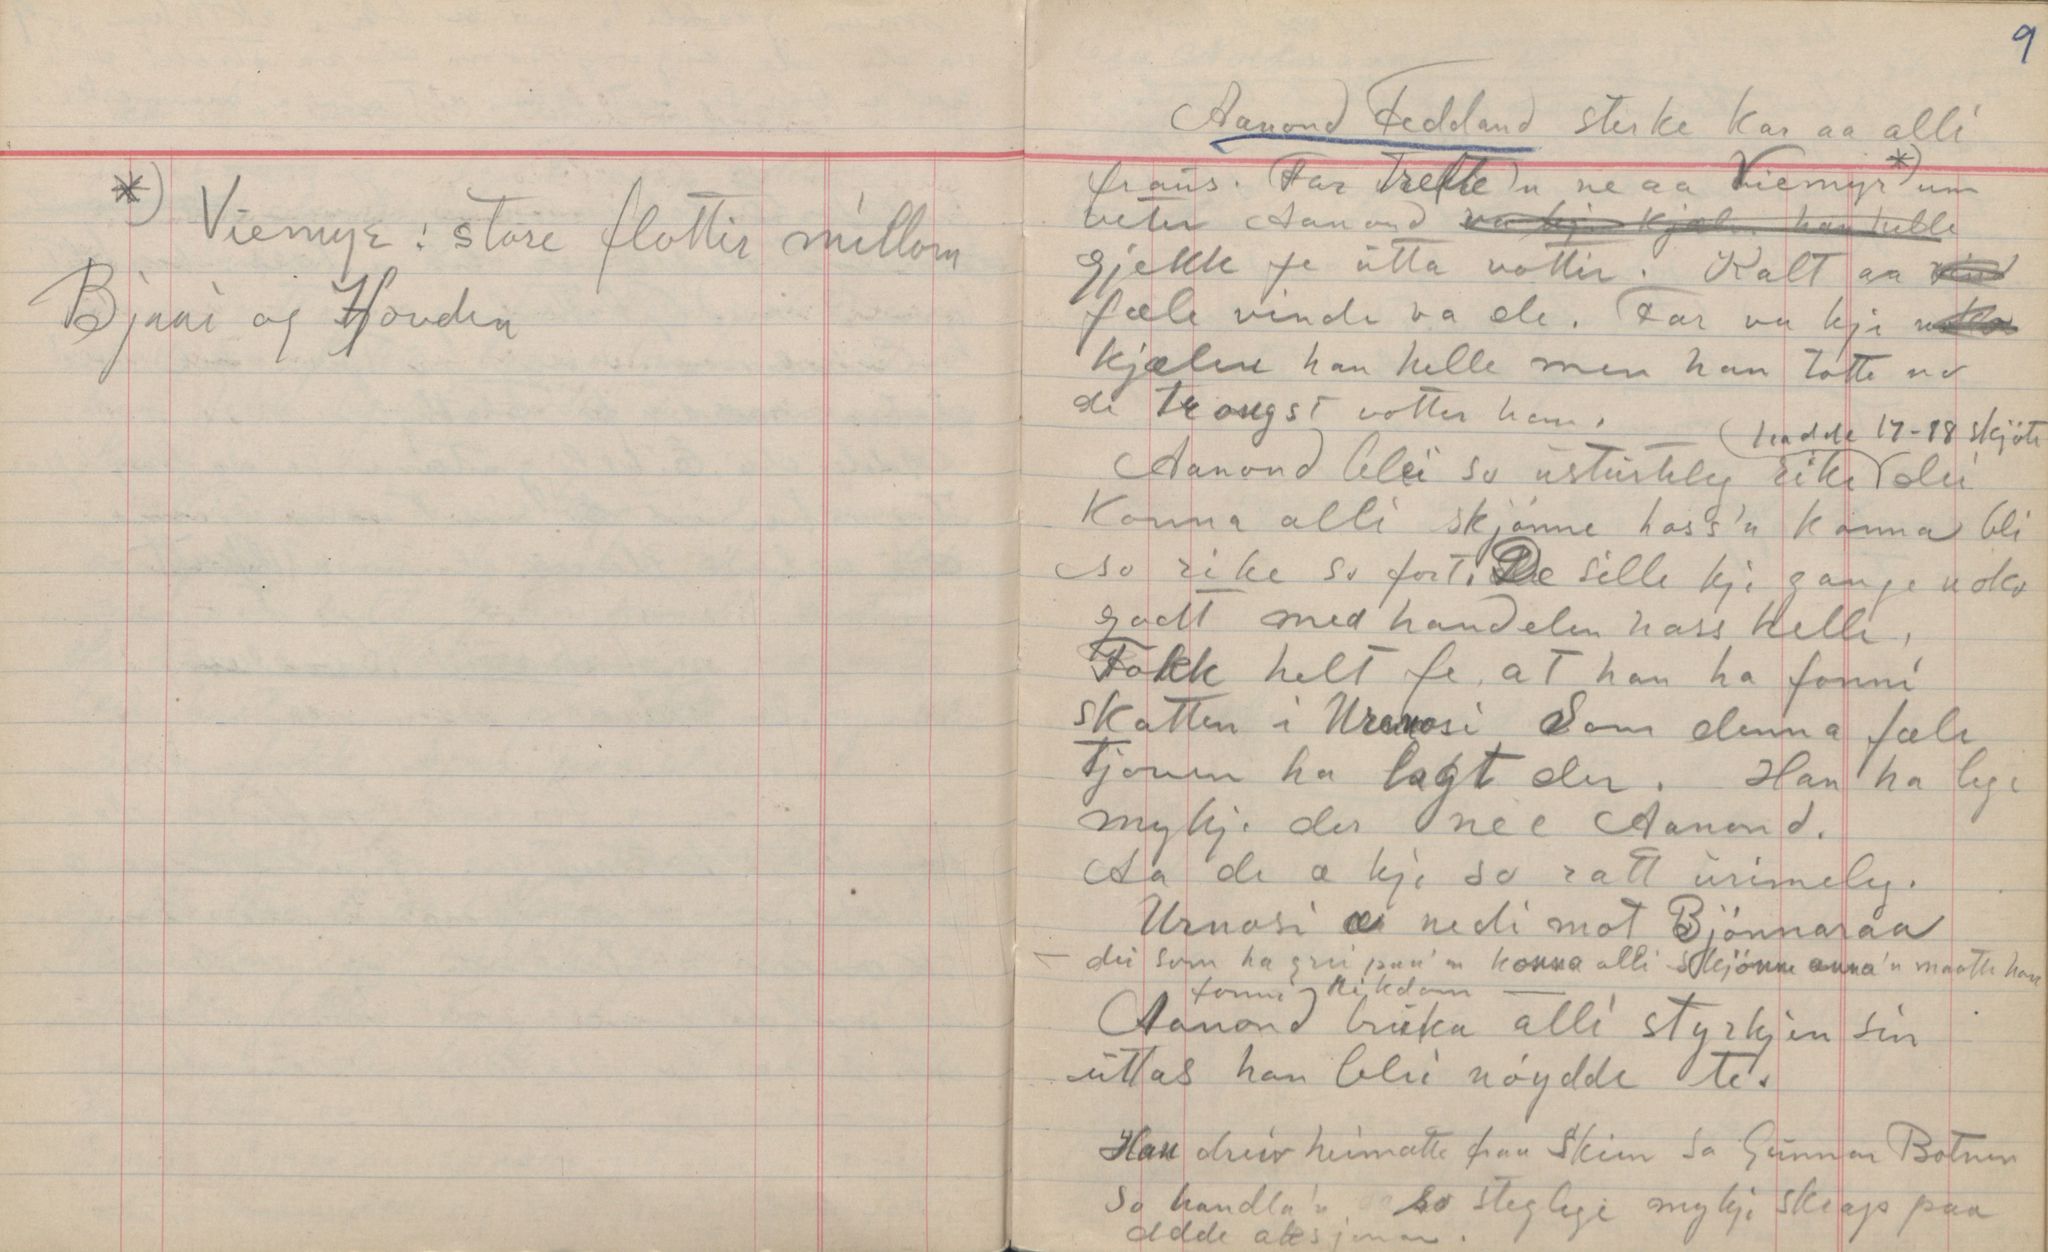 *) Viemyr: store flottir millom
Bjaai og Hovden
9
Aanond Feddland sterke kar aa alli
fraus. Far trefte 'n ne aa Viemyr *) um
veter Aanond va kje kjælen han helle
gjekk fe utta vottir. Kalt aa vind
fæle vinde va de. Far va kje noko
kjælen han helle men han totte no
de trongst votter han.
hadde 17-18 skjøte
Aanond blei so ustürteleg rike dei
konna alli skjönne hoss'n konna bli
so rike so fort. De sille kje gange noko
godt med handelen hass helle,
Fokk helt fe, at han ha fonni
skatten i Urnosi som denna fæle
tjoven ha lagt der. Han ha lege
mykje der ne Aanond.
Aa de æ kje so ratt urimeleg.
Urnosi æ nedi mot Björnaraa
- dei som ha grei paa'n konna alli skjönne anna'n maatte have
fonni rikdom -
Aanond brüka alli styrkjen sin
üttas han blei nöydde te.
Han dreiv heimatte fraa Skien sa Gunnar Botnen
so handla'n so steglege mykji skrap paa
adde aksjonar.